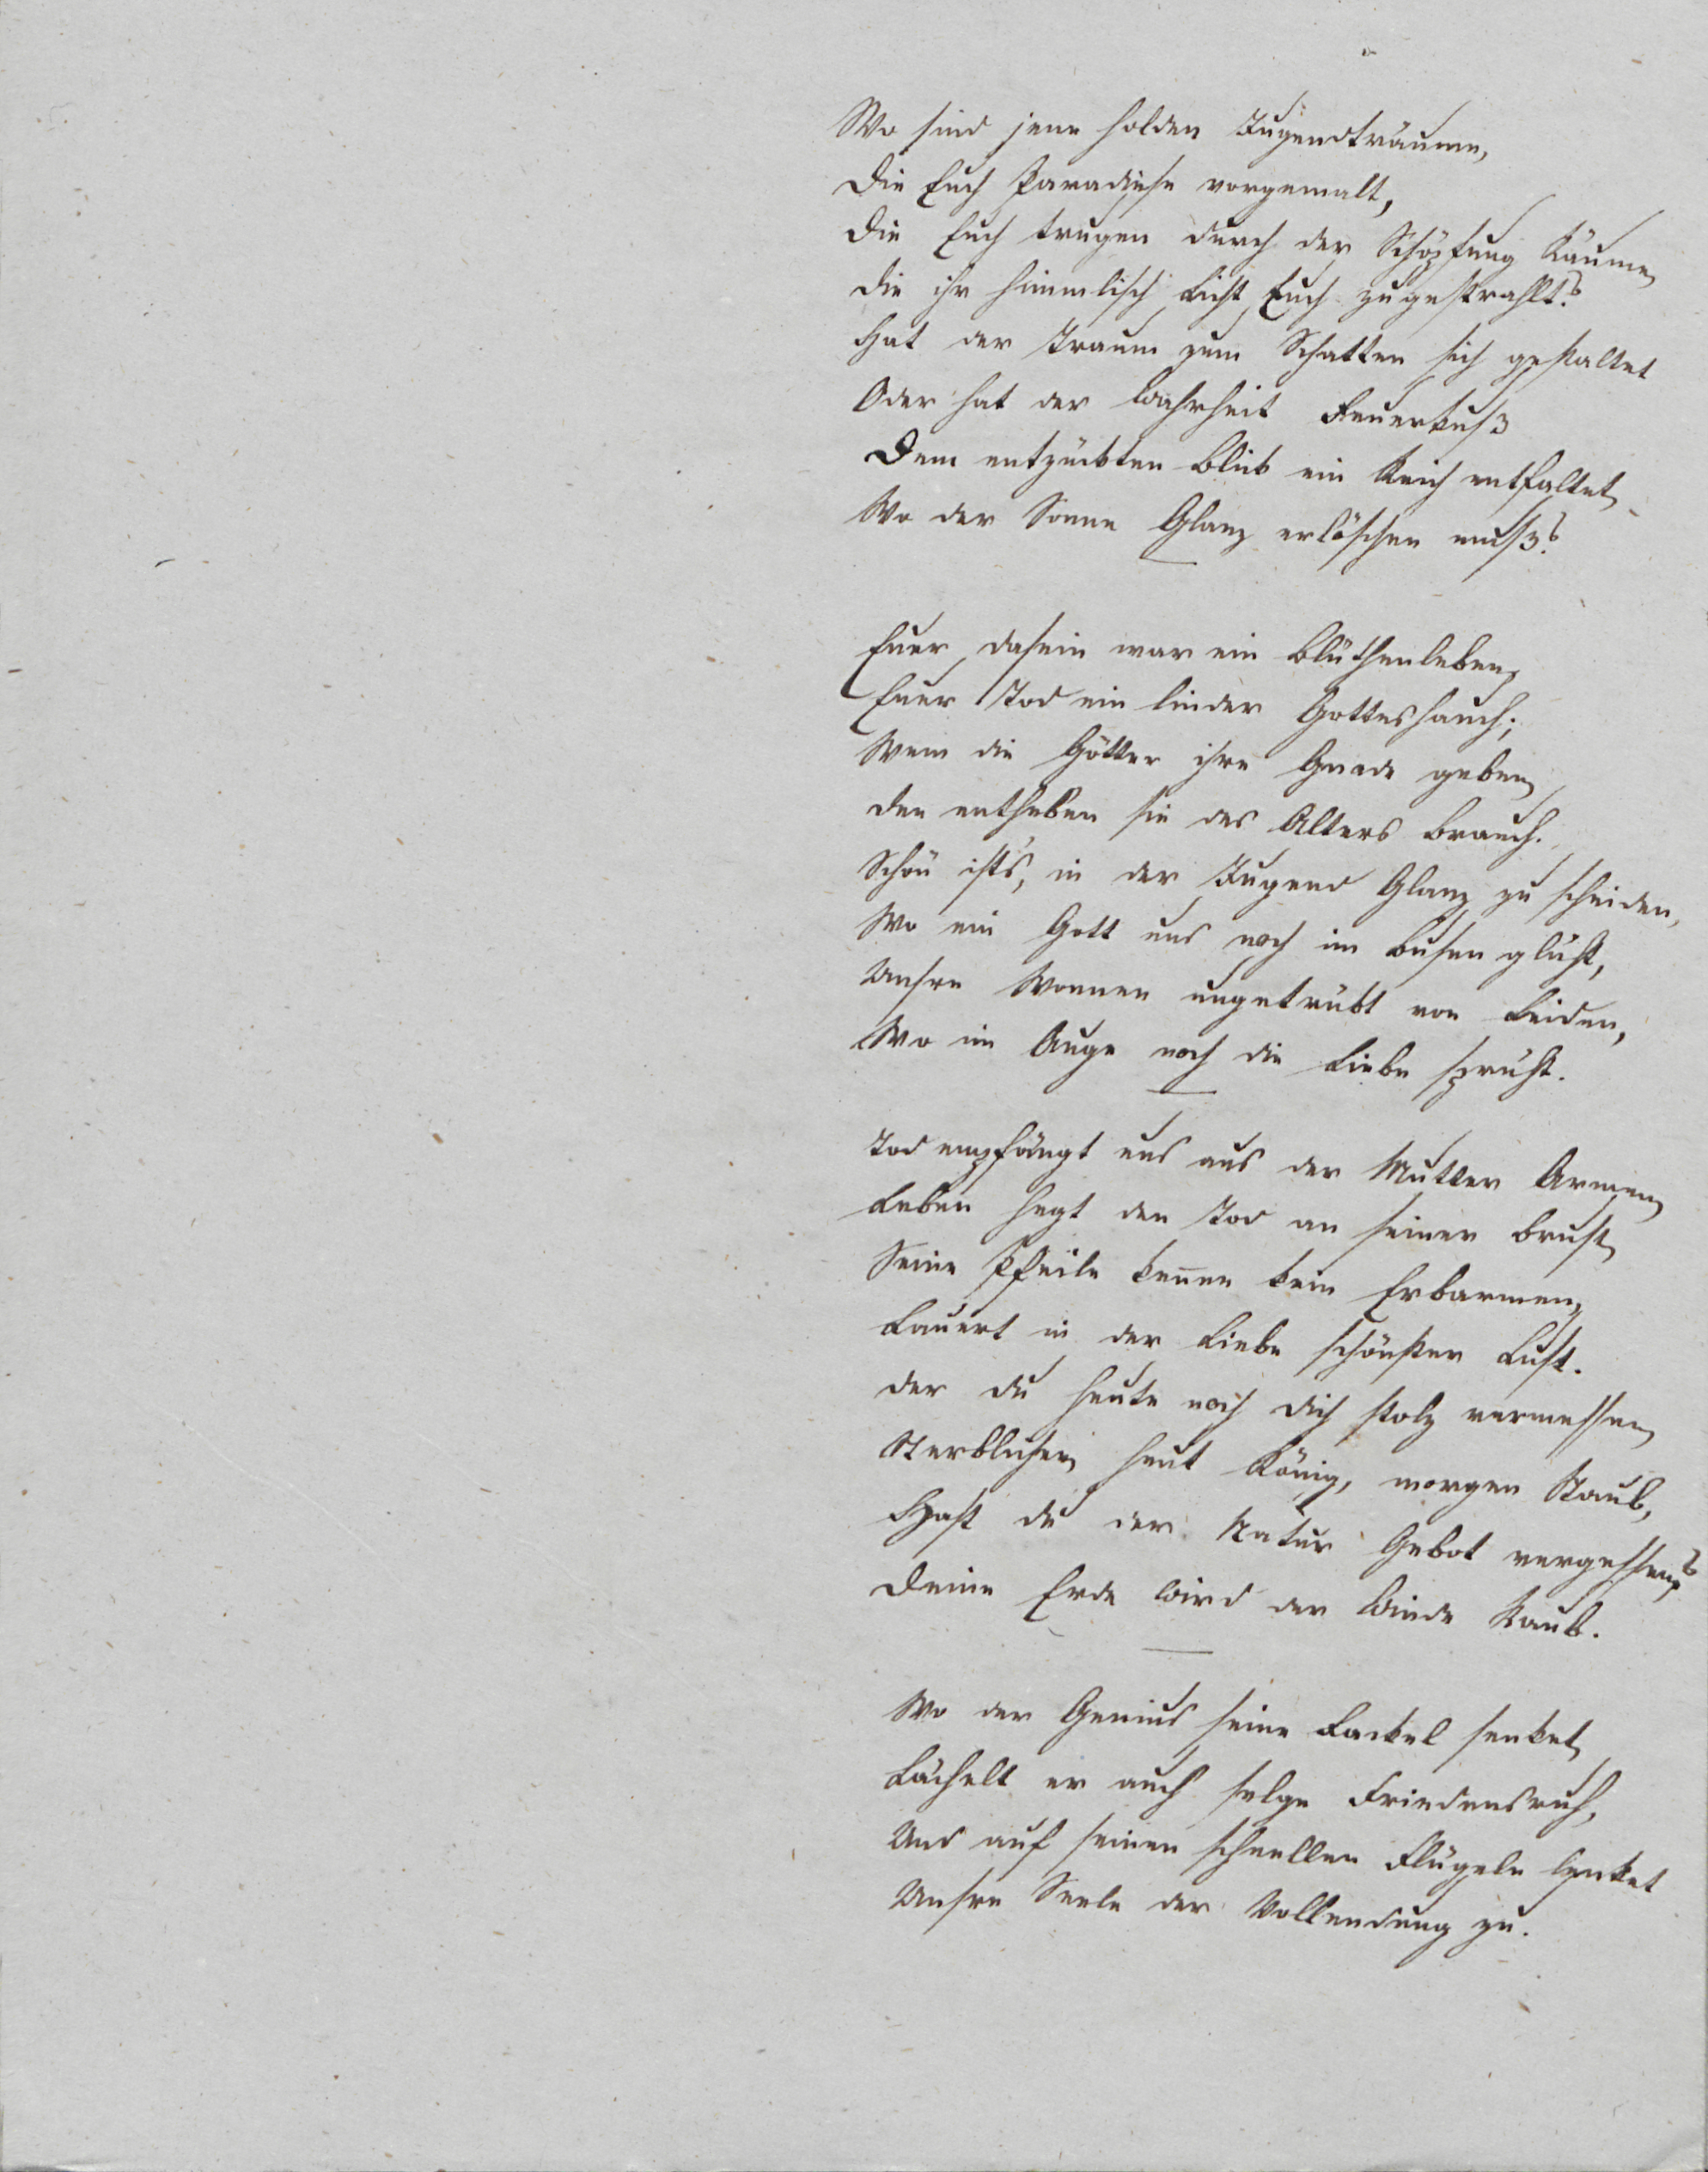 Wo sind jene holden Jugendträume,
Die Euch Paradiese vorgemalt,
Die Euch trugen durch der Schöpfung Räume,
Die ihr himmlisch Licht Euch zugestrahlt?
Hat der Traum zum Schatten sich gestaltet
Oder hat der Wahrheit Feuerkuß
Dem entzückten Blick ein Reich entfaltet,
Wo der Sonne Glanz erlöschen muß?
Euer Dasein war ein Blüthenleben,
Euer Tod ein linder Gotteshauch;
Wem die Götter ihre Gnade geben,
Den entheben sie des Alters Brauch.
Schön ist's, in der Jugend Glanz zu scheiden,
Wo ein Gott uns noch im Busen glüht,
Unsre Wonnen ungetrübt von Leiden,
Wo im Auge noch die Liebe sprüht.
Tod empfängt uns aus der Mutter Armen,
Leben hegt den Tod an seiner Brust,
Seine Pfeile keñen kein Erbarmen,
Lauert in der Liebe schönster Lust.
Der du heute noch dich stolz vermessen,
Sterblicher, heut König, morgen Staub,
Hast du der Natur Gebot vergessen?
Deine Erde wird der Winde Raub.
Wo der Genius seine Fackel senket,
Lächelt er auch selge Friedensruh,
Und auf seinen schnellen Flügeln lenket
Unsre Seele der Vollendung zu.